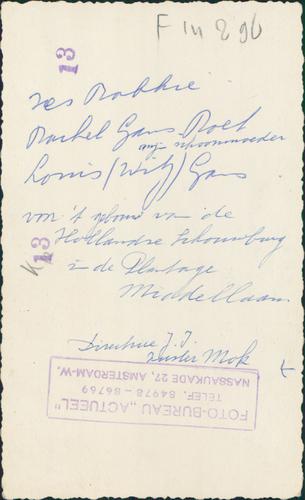 F in 296
13
Jes Rabbie
Rachel Gans Roet
mijn schoonmoeder
Louis (Wily) Gans
voor 't gebouw van de
13
Hollandse Schouwburg
in de Plantage
Middellaan
Directrice J.I.
zuster Mok
FOTO-BUREAU „ACTUEEL"
NASSAUKADE 27, AMSTERDAM-W.
TELEF. 84978 - 86769